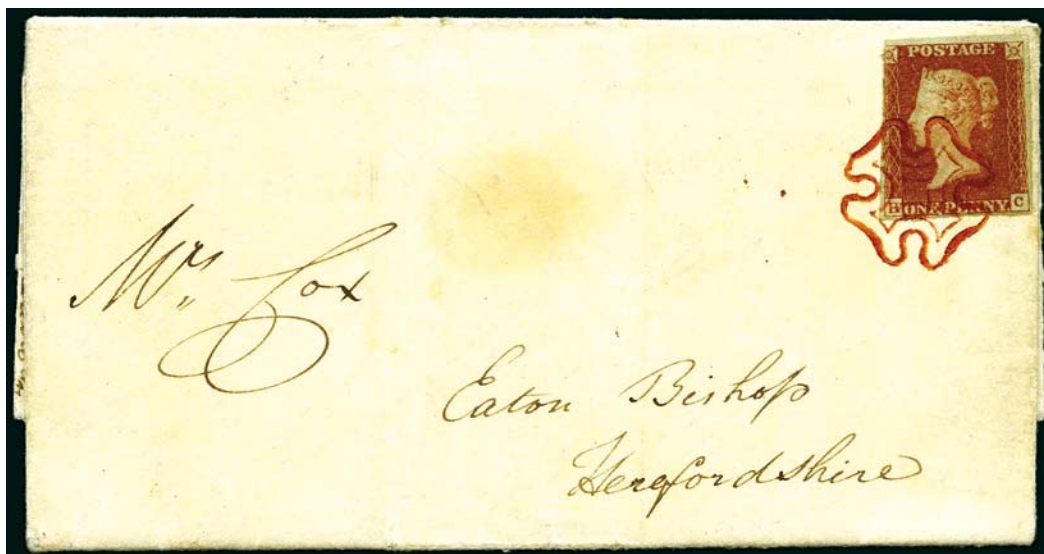 POSTAGE
B ONE PENNY C
Mrs. Cox
Eaton Bishop
Herefordshire